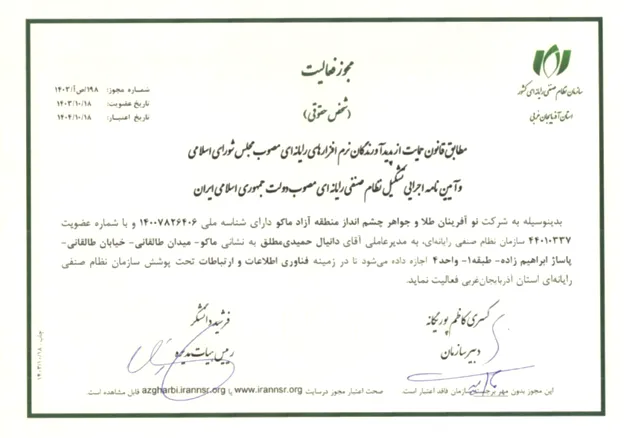 مجوز فعالیت
(شخص حقوقی)
سازمان نظام صنفی رایانه‌ای کشور
استان آذربایجان غربی
شماره مجوز: ۱۹۸/ص آ/۱۴۰۳
تاریخ عضویت: ۱۴۰۳/۱۰/۱۸
تاریخ اعتبار: ۱۴۰۴/۱۰/۱۸
مطابق قانون حمایت از پدیدآورندگان نرم افزارهای رایانه‌ای مصوب مجلس شورای اسلامی
و آیین نامه اجرایی تشکیل نظام صنفی رایانه‌ای مصوب دولت جمهوری اسلامی ایران
بدینوسیله به شرکت نو آفرینان طلا و جواهر چشم انداز منطقه آزاد ماکو دارای شناسه ملی ۱۴۰۰۷۸۲۶۴۰۶ و با شماره عضویت
۴۴۰۱۰۳۳۷ سازمان نظام صنفی رایانه‌ای، به مدیرعاملی آقای دانیال حمیدی‌مطلق به نشانی ماکو- میدان طالقانی- خیابان طالقانی-
پاساژ ابراهیم زاده- طبقه۱- واحد۴ اجازه داده می‌شود تا در زمینه فناوری اطلاعات و ارتباطات تحت پوشش سازمان نظام صنفی
رایانه‌ای استان آذربایجان‌غربی فعالیت نماید.
کسری کاظم پور یگانه
دبیر سازمان
فرشید دانشگر
رییس هیات مدیره
این مجوز بدون مهر برجسته سازمان فاقد اعتبار است.
صحت اعتبار مجوز درسایت www.irannsr.org یا azgharbi.irannsr.org قابل مشاهده است.
چاپ: ۱۴۰۳/۱۰/۱۸